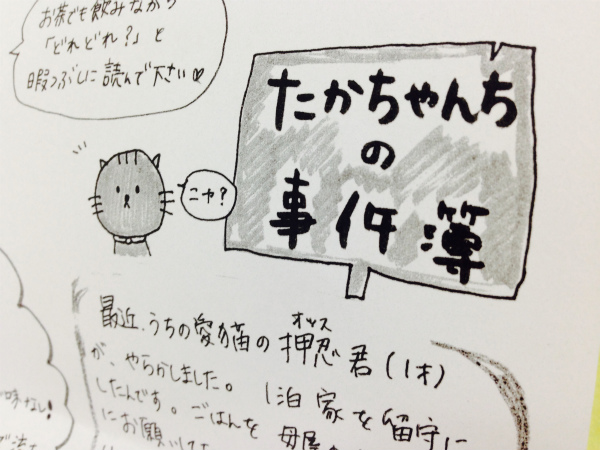 お茶でも飲みながら
「どれどれ?」と
暇つぶしに読んで下さい♡
たかちゃんち
の
事件簿
ニャ?
最近、うちの愛猫の押忍君(1才)
オッス
が、やらかしました。1泊家を留守に
したんです。ごはんを母屋
にお願いして
味なし!